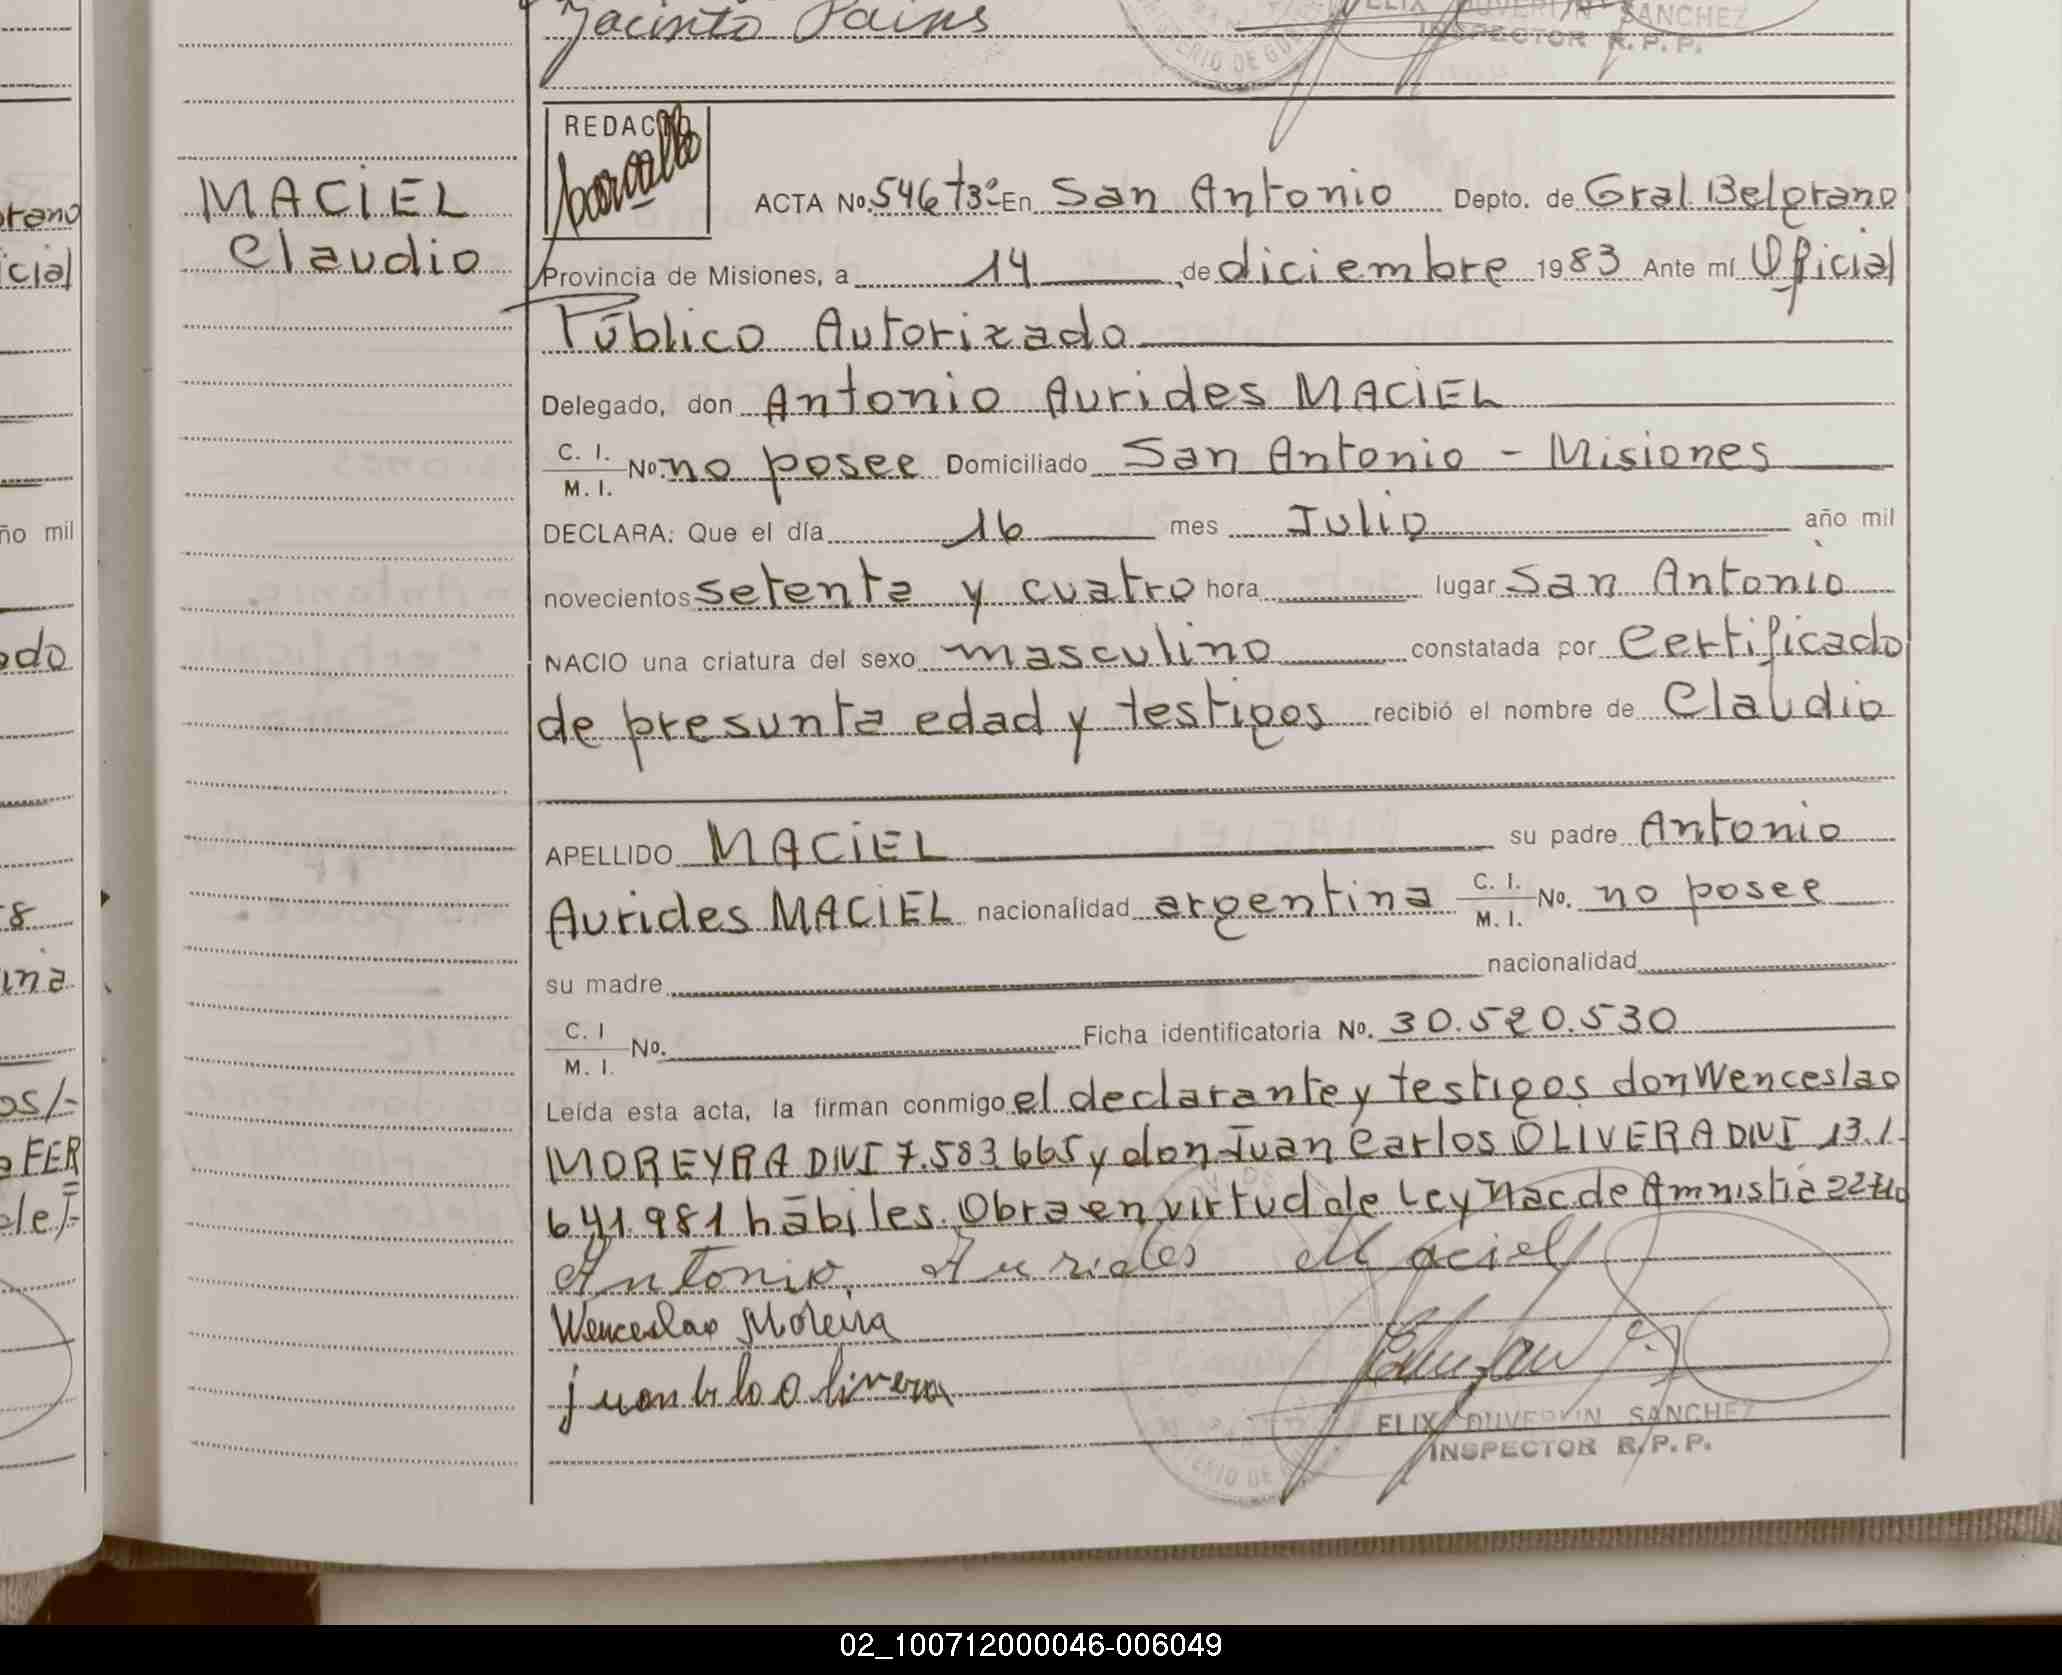 Jacinto
ELIX DUVERLIN SANCHEZ
INSPECTOR R. P. P.
MACIEL
Claudio
REDAC
ACTA No. 546 T3º En San Antonio Depto. de Gral Belgrano
Provincia de Misiones, a 14 de diciembre 1983 Ante mí Oficial
Público Autorizado
Delegado, don Antonio Aurides MACIEL
C. I.
M. I. No. no posee Domiciliado San Antonio - Misiones
DECLARA: Que el día 16 mes Julio año mil
novecientos setenta y cuatro hora lugar San Antonio
NACIO una criatura del sexo masculino constatada por Certificado
de presunta edad y testigos recibió el nombre de Claudio
APELLIDO MACIEL su padre Antonio
Aurides MACIEL nacionalidad argentina C. I. M. I. No. no posee
su madre nacionalidad
C. I M. I. No. Ficha identificatoria No. 30.520.530
Leída esta acta, la firman conmigo el declarante y testigos don Wenceslao
MOREYRA DNI 7.583.665 y don Juan Carlos OLIVERA DNI 13.1
641.981 hábiles. Obra en virtud de Ley Nac de Amnistia
Antonio Aurides Maciel
Wenceslao Moreira
Olivera
ELIX DUVERLIN SANCHEZ
INSPECTOR R. P. P.
orano
icial
ño mil
ado
s8
ina
os/-
a FER
02_100712000046-006049